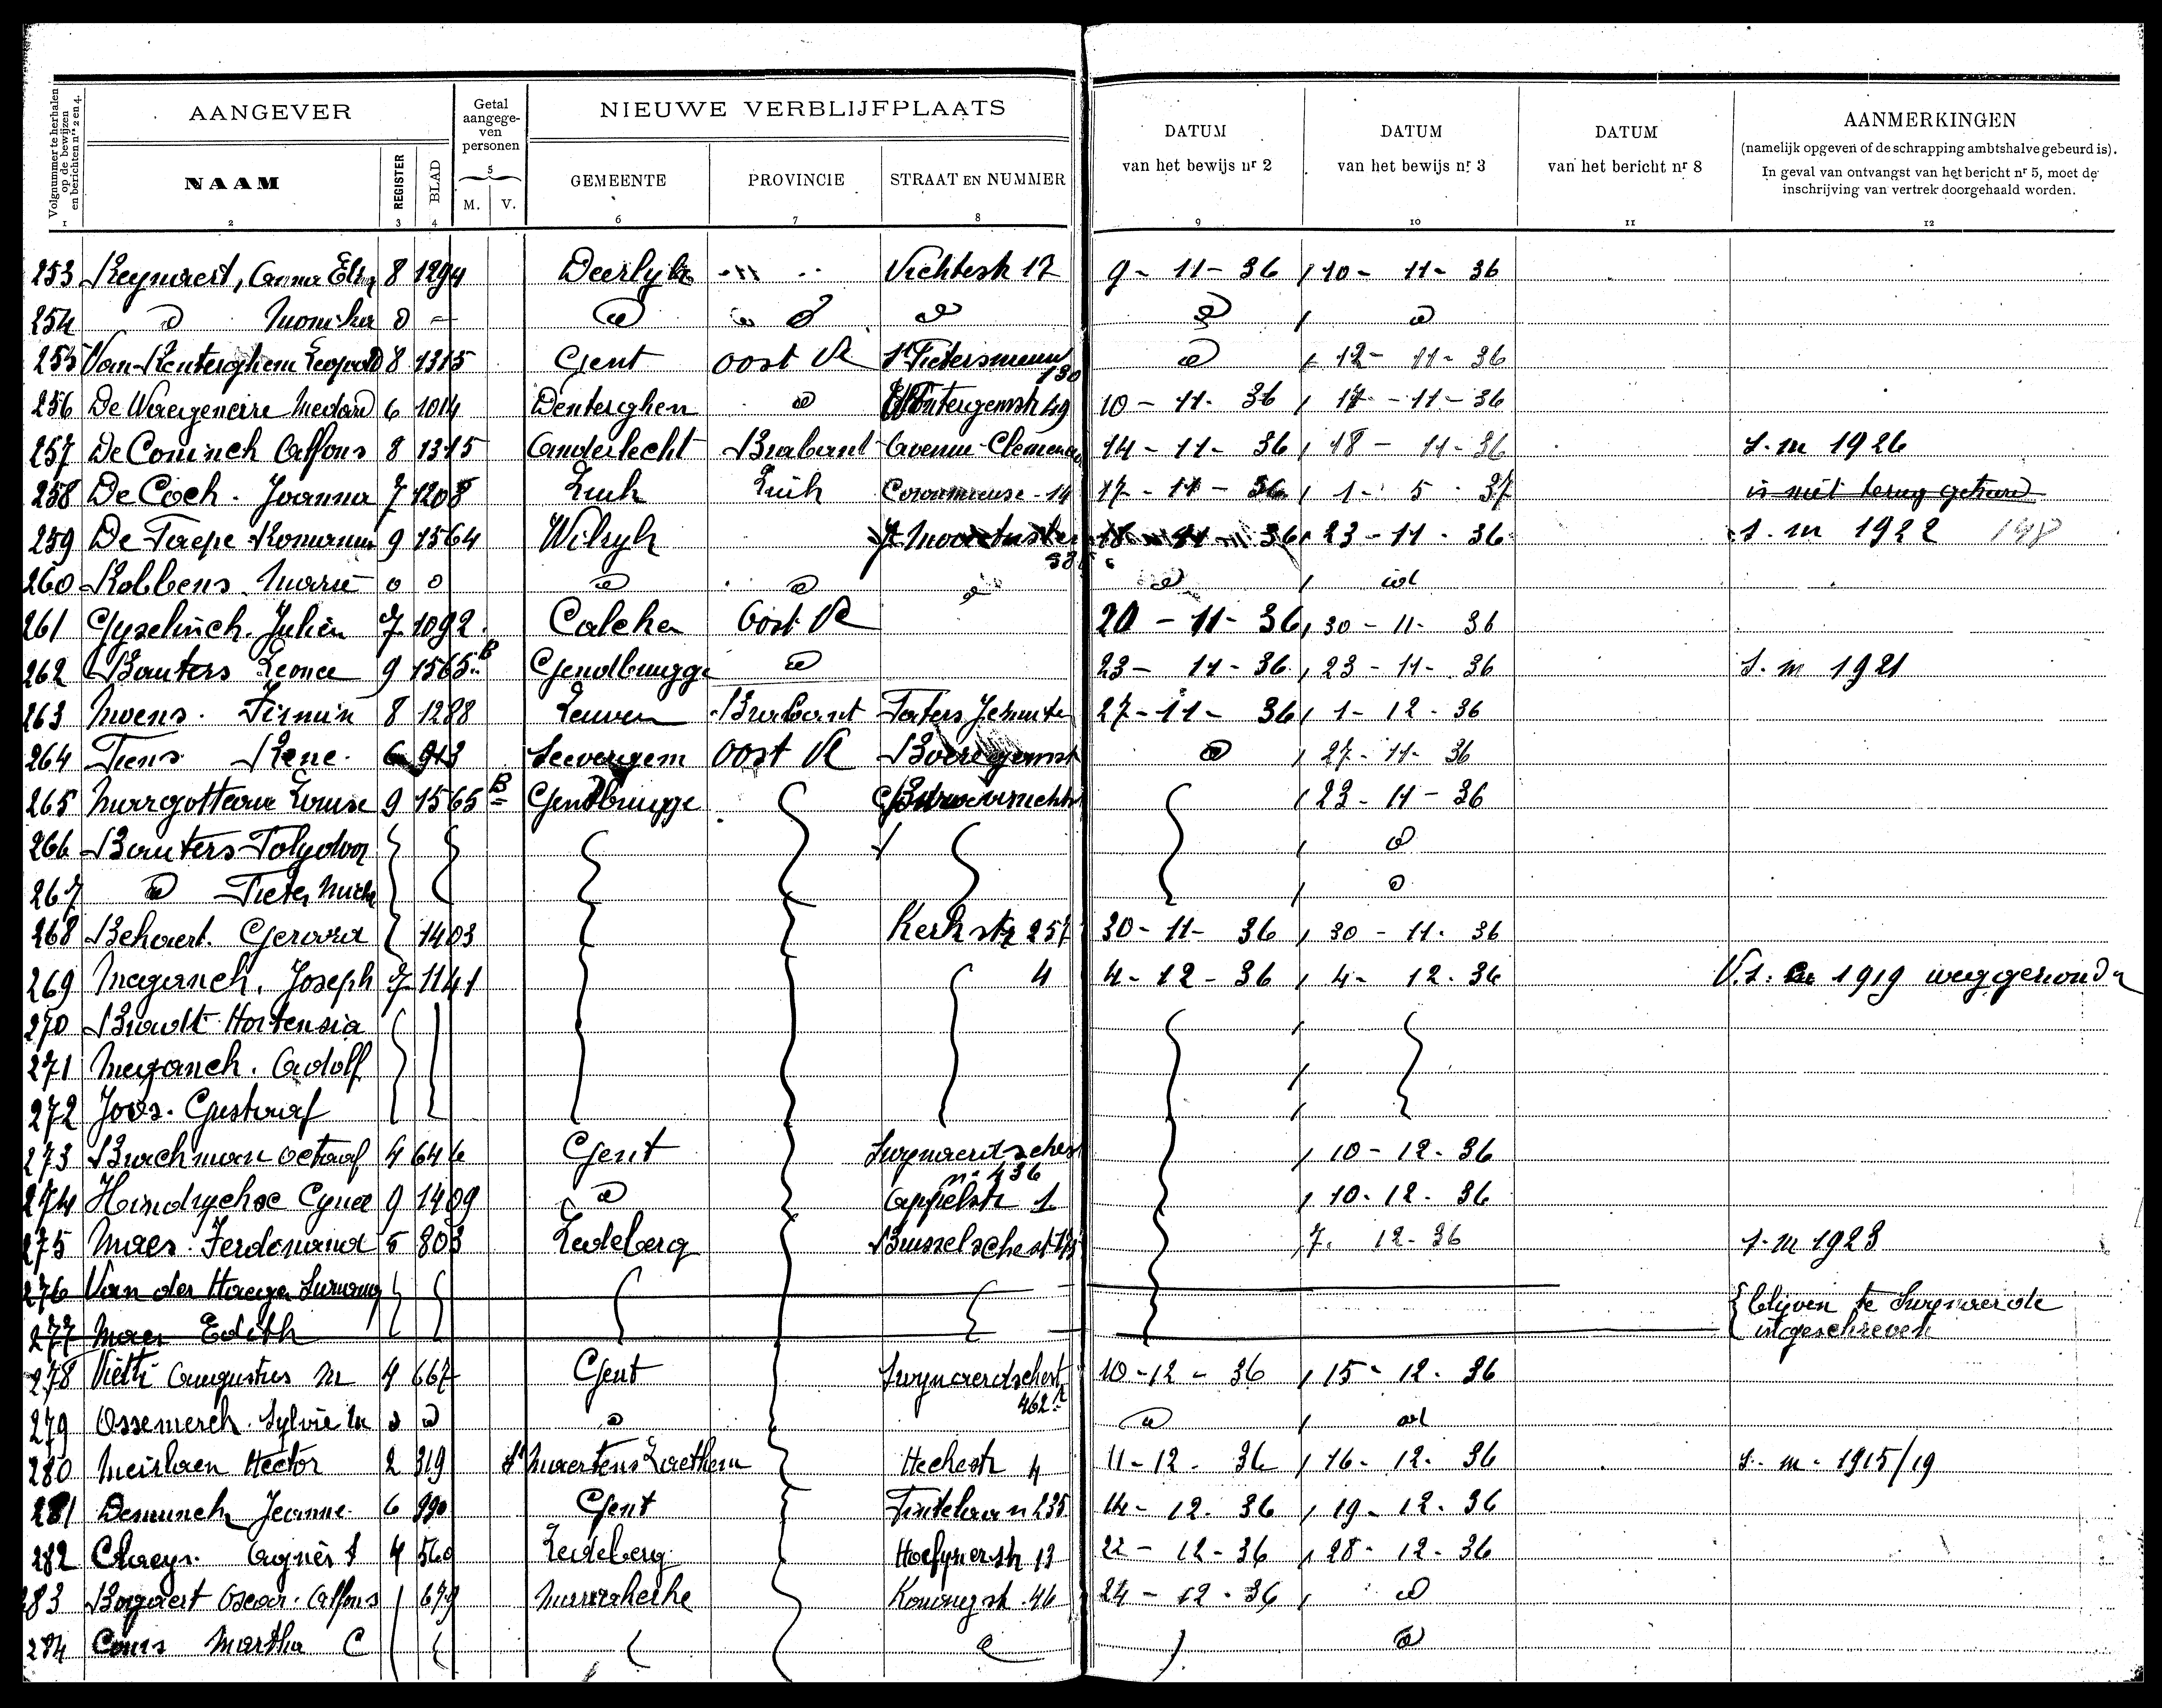 Volgnummer te herhalen op de bewijzen en berichten nrs 2 en 4.
AANGEVER
Getal aangegeven personen
NIEUWE VERBLIJFPLAATS
DATUM van het bewijs nr 2
DATUM van het bewijs nr 3
DATUM van het bericht nr 8
AANMERKINGEN
(namelijk opgeven of de schrapping ambtshalve gebeurd is).
In geval van ontvangst van het bericht nr 5, moet de inschrijving van vertrek doorgehaald worden.
NAAM REGISTER BLAD 5 M. V. GEMEENTE PROVINCIE STRAAT EN NUMMER
1 2 3 4 6 7 8 9 10 11 12
253 Reynaert, Anna 8 1294 Deerlyk Vichtestr 17 9-11-36 10-11-36
254 Monika
255 Van Renterghem Leopold 8 1315 Gent Oost Vl St Pietersnieuw 130 12-11-36
256 De Waegeneire Medard 6 1014 Denterghem 49 10-11-36 17-11-36
257 De Coninck Alfons 8 1315 Anderlecht Brabant Avenue Clemenceau 14-11-36 18-11-36 S.m 1926
258 De Cock Joanna 7 1208 Luik Luik Coronmeuse 14 17-11-36 1-5-37 is niet terug gekeerd
259 De Taepe Romanus 9 1564 Wilryk 18-11-36 23-11-36 s.m 1922 148
260 Robbens Marie
261 Gyselinck Julien 7 1092 Calcken Oost Vl 20-11-36 30-11-36
262 Bauters Leonce 9 1565 B Gendbrugge 23-11-36 23-11-36 S.m 1921
263 Moens Firmin 8 1288 Leuven Brabant Paters Jezuiten 27-11-36 1-12-36
264 Tiens Rene 6 913 Seevergem Oost Vl 27-11-36
265 Margotteau Louise 9 1565 B Gendbrugge 23-11-36
266 Bauters Polydoor
267 Pieter
268 Bekaert Gerard 1403 Kerkstr 257 30-11-36 30-11-36
269 Meganck Joseph 7 1141 4 4-12-36 4-12-36 1919 weggezonden
270 Hortensia
271 Meganck Adolf
272 Joos Gustaaf
273 Brackman Octaaf 4 646 Gent Swynaerdschestr n° 436 10-12-36
274 Hendryckse Cyriel 9 1409 Appelstr 1 10-12-36
275 Maes Ferdinand 5 803 Ledeberg Brusselschestr 7-12-36 s.m 1923
276 Van der Haegen
277 Maes Edith
blijven te Swynaerde
ingeschreven
278 Augustus M 4 667 Gent Swynaerdschestr 462 10-12-36 15-12-36
279 Ossemerck Sylvie M
280 Meirlaen Hector 2 319 St Maertens Laethem Heckestr 4 11-12-36 16-12-36 s.m. 1915/19
281 Demunck Jeanne 6 990 Gent Fintelaan 235 14-12-36 19-12-36
282 Claeys Agnès S 4 560 Ledeberg 13 22-12-36 28-12-36
283 Bogaert Oscar Alfons 679 Mariakerke Koningstr 46 24-12-36
284 Martha C